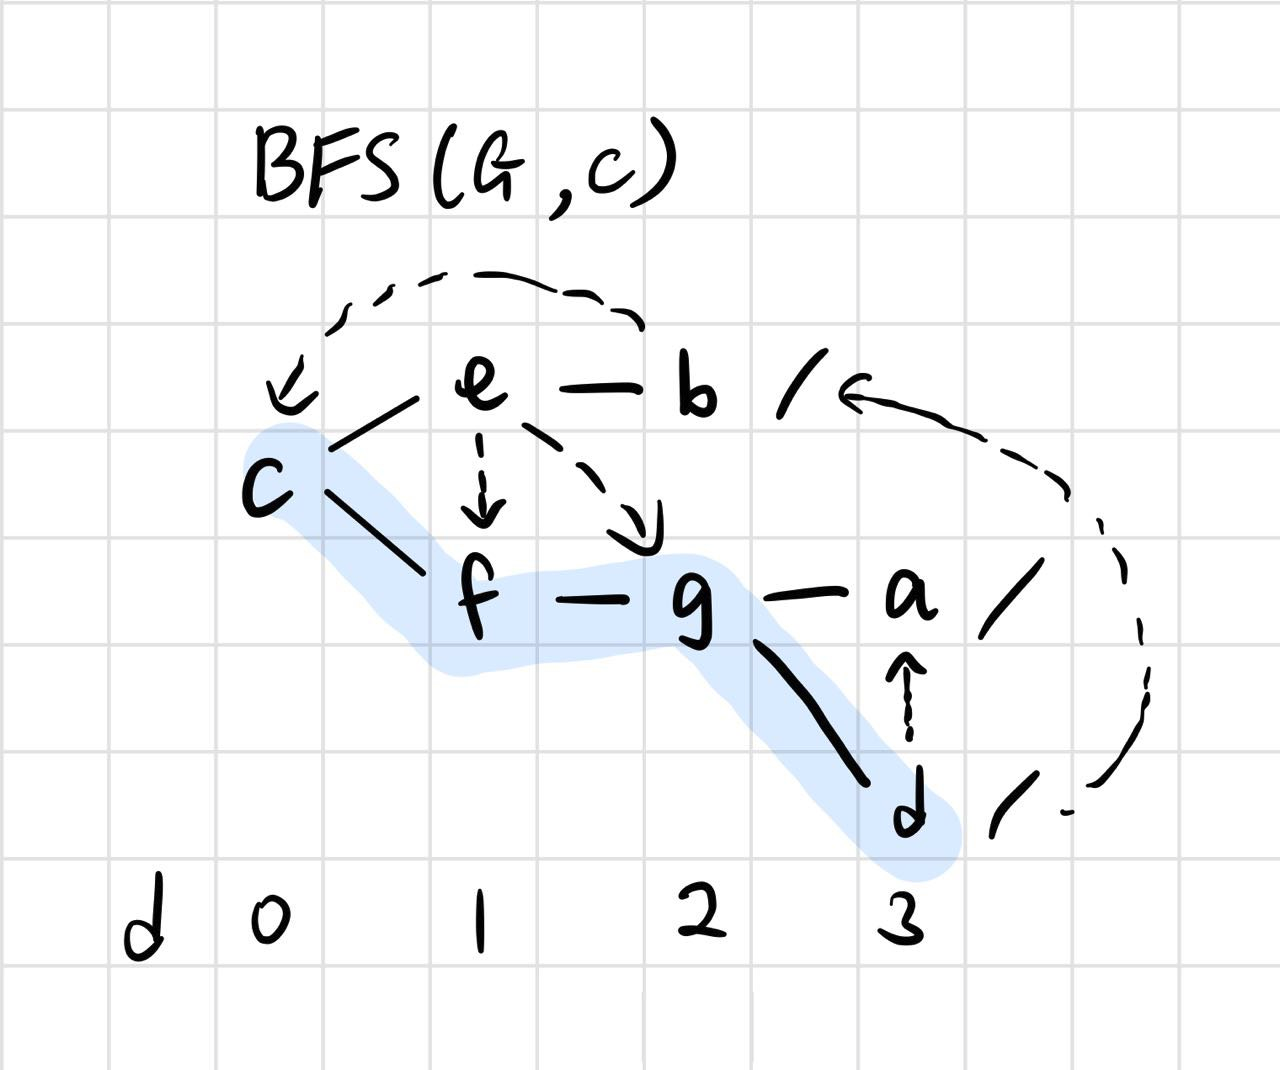 BFS(G,c)
e — b /
c
f — g — a /
d /
d 0 1 2 3